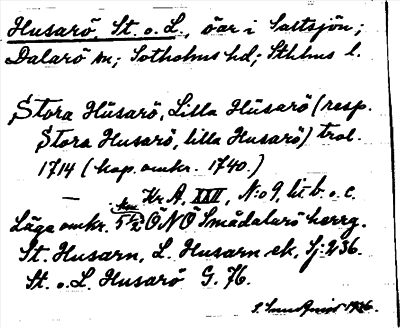 Husarö, St. o. L., öar i Saltsjön;
Dalarö sn; Sotholms hd; Sthlms l.
Stora Hüsarö, Lilla Hüsarö (resp.
Stora Husarö, lilla Husarö) trol.
1714 (kop. omkr. 1740.)
— Kr. A. XXVI, N:o 9, lit b. o. c.
Läge omkr. 5 1/2 km ÖNÖ Smådalarö herrg.
St. Husarn, L. Husarn ek. Sj: 236.
St. o. L. Husarö G. 76.
1936.